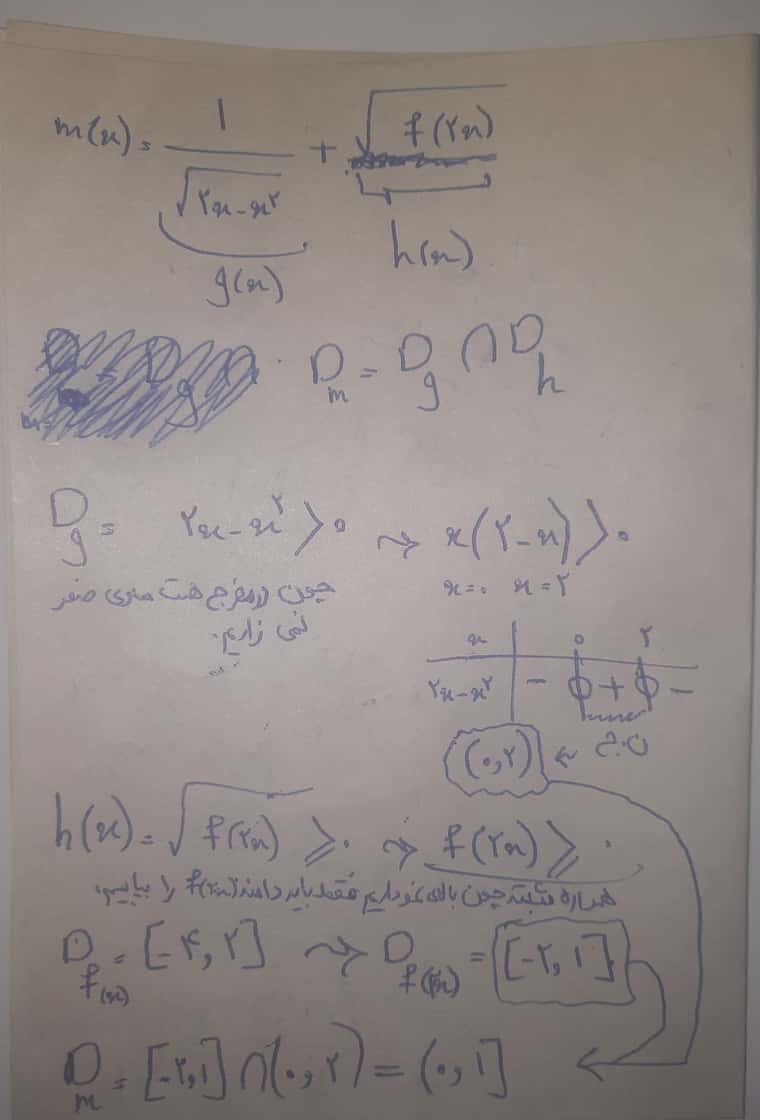 m(x) = 1 / √(۲x - x^۲) + √f(۲x)
g(x) h(x)
D_m = D_g ∩ D_h
D_g = ۲x - x^۲ > ۰ ⇝ x(۲ - x) > ۰
چون در مخرج هست مساوی صفر x = ۰ x = ۲
نمی زاریم.
x ۰ ۲
۲x - x^۲ - + -
(۰,۲) ← ج.ن
h(x) = √f(۲x) ≥ ۰ ⇝ f(۲x) ≥ ۰
همواره مثبته چون بالای نموداریم فقط باید دامنه f(۲x) را بیابیم.
D_f(x) = [-۴, ۲] ⇝ D_f(۲x) = [-۲, ۱]
D_m = [-۲,۱] ∩ (۰, ۲) = (۰, ۱]